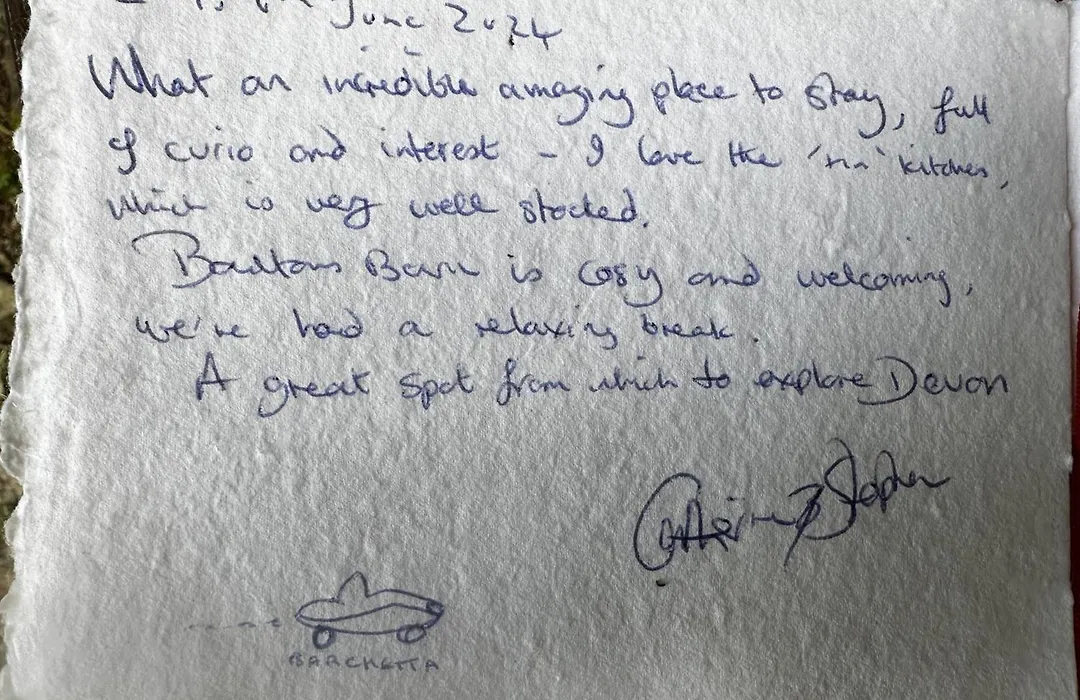 June 2024
What an incredible amazing place to stay, full
of curio and interest - I love the 'tin' kitchen,
which is very well stocked.
Barn is cosy and welcoming,
we've had a relaxing break.
A great spot from which to explore Devon
Catherine & Stephen
BARCHETTA